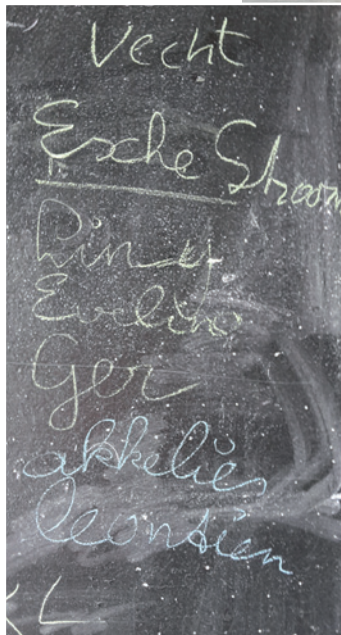 Vecht
Esche Stroom
Eveline
Ger
akkelies
leontien